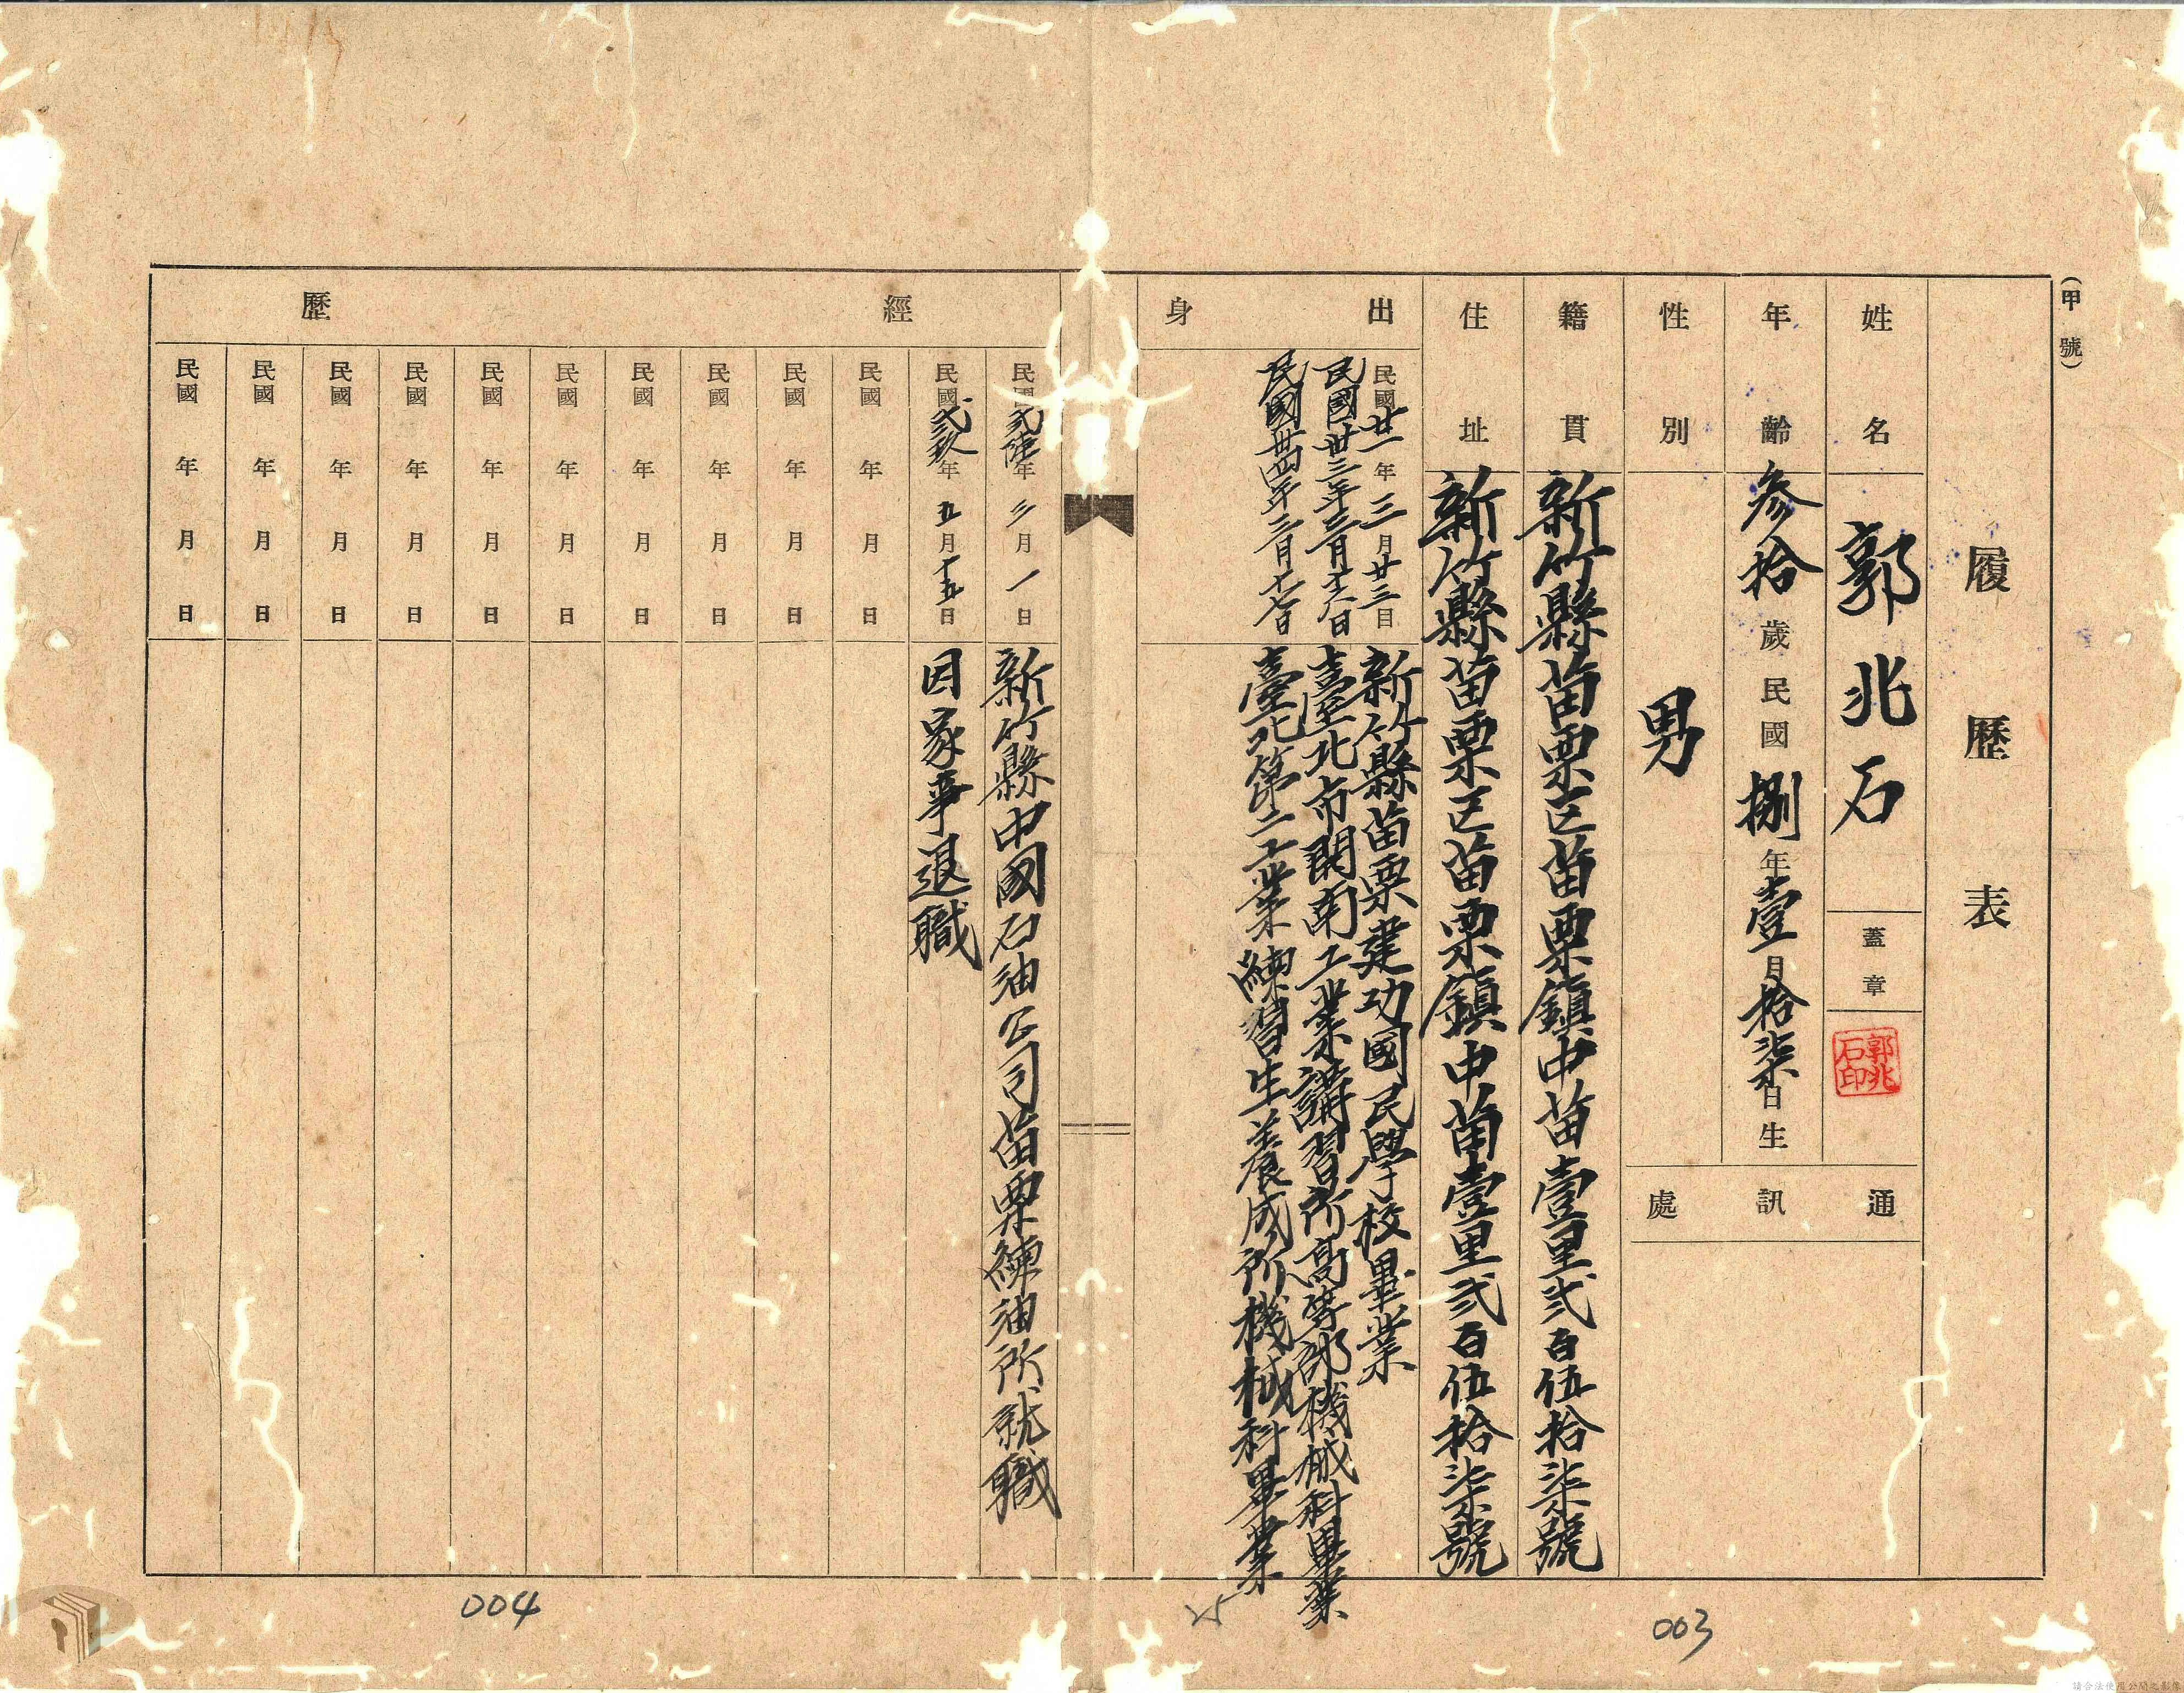 (甲號)
履歷表
姓名 郭兆石 蓋章
郭兆石印
年齡 參拾歲民國捌年壹月拾柒日生
性別 男
通訊處
籍貫 新竹縣苗栗区苗栗鎮中苗壹里弍百伍拾柒號
住址 新竹縣苗栗区苗栗鎮中苗壹里弍百伍拾柒號
出身
民國廿一年三月廿三日 新竹縣苗栗建功國民學校畢業
民國卅三年三月十六日 臺北市開南工業講習所高等部機械科畢業
民國卅四年三月十七日 臺北第二工業練習生養成所機械科畢業
經歷
民國弍陸年三月一日 新竹縣中國石油公司苗栗練油所就職
民國弍玖年五月十五日 因家事退職
民國 年 月 日
民國 年 月 日
民國 年 月 日
民國 年 月 日
民國 年 月 日
民國 年 月 日
民國 年 月 日
民國 年 月 日
民國 年 月 日
民國 年 月 日
003
004
請合法使用公開之影像